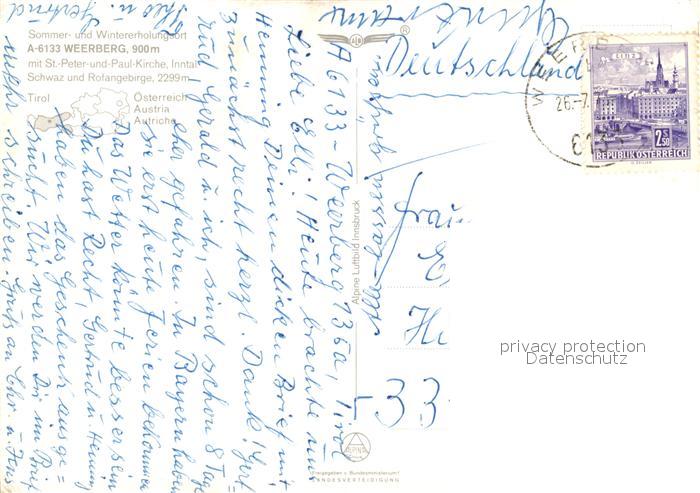 Sommer- und Wintererholungsort
A-6133 WEERBERG, 900m
mit St.-Peter-und-Paul-Kirche, Inntal
Schwaz und Rofangebirge, 2299m
Tirol
Österreich
Austria
Autriche
A 6133 - Weerberg 136a, Tirol
Liebe Elli! Heute brachte uns
Henning Deinen dicken Brief mit
Zunächst recht herzl. Dank! Gert-
rud Gerald u. ich, sind schon 8 Tage
eher gefahren. In Bayern haben
sie erst heute Ferien bekommen
Das Wetter könnte besser sein
Du hast Recht, Gertrud u. Henning
haben das Geschenk ausge=
sucht. Wir werden Dir im Brief
mehr schreiben. Gruß an Chr. u. Jens
u. Gertrud
Alpine Luftbild Innsbruck
Deutschland
WEERB
26.-7.
LINZ
2.50
REPUBLIK ÖSTERREICH
Frau
E
He
-33
privacy protection
Datenschutz
ALPINE
Freigegeben v. Bundesministerium f.
LANDESVERTEIDIGUNG